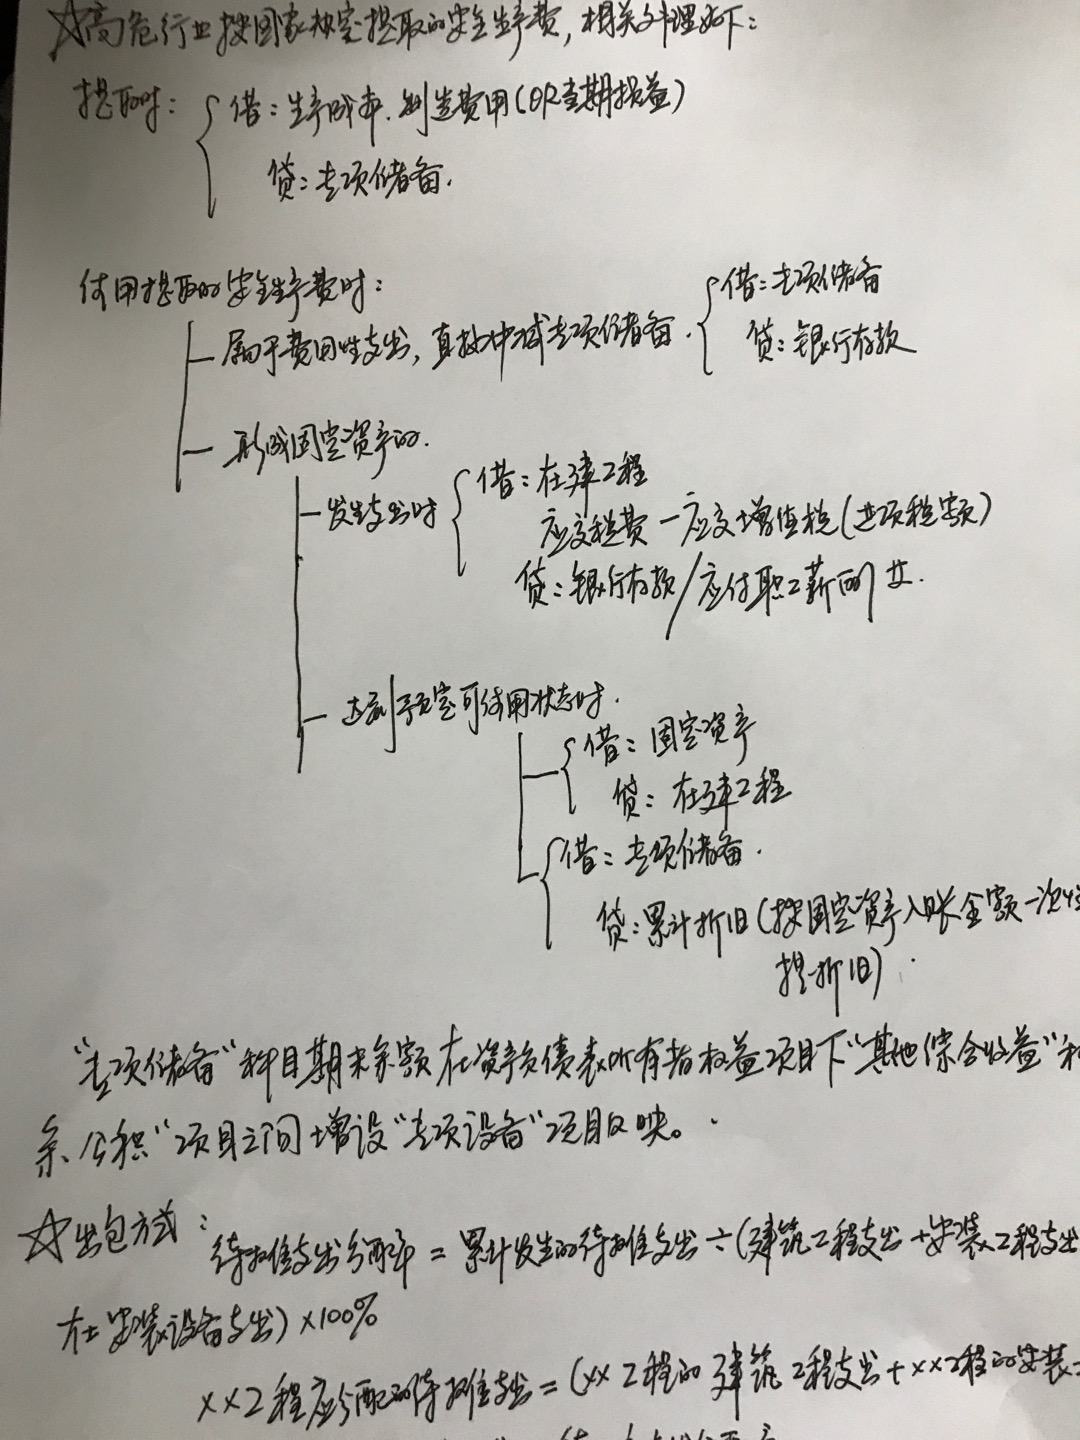 ☆高危行业按国家规定提取的安全生产费,相关处理如下:
提取时: 借:生产成本、制造费用(OR当期损益)
贷:专项储备.
使用提取的安全生产费时:
属于费用性支出,直接冲减专项储备. 借:专项储备
贷:银行存款
形成固定资产的.
发生支出时 借:在建工程
应交税费—应交增值税(进项税额)
贷:银行存款/应付职工薪酬
达到预定可使用状态时.
借:固定资产
贷:在建工程
借:专项储备.
贷:累计折旧(按固定资产入账金额一次
提折旧).
"专项储备"科目期末余额在资产负债表所有者权益项目下"其他综合收益"
余公积"项目之间增设"专项设备"项目反映。
☆出包方式:
待摊支出分配率=累计发生的待摊支出÷(建筑工程支出+安装工程支出
在安装设备支出)×100%
××工程应分配的待摊支出=(××工程的建筑工程支出+××工程的安装